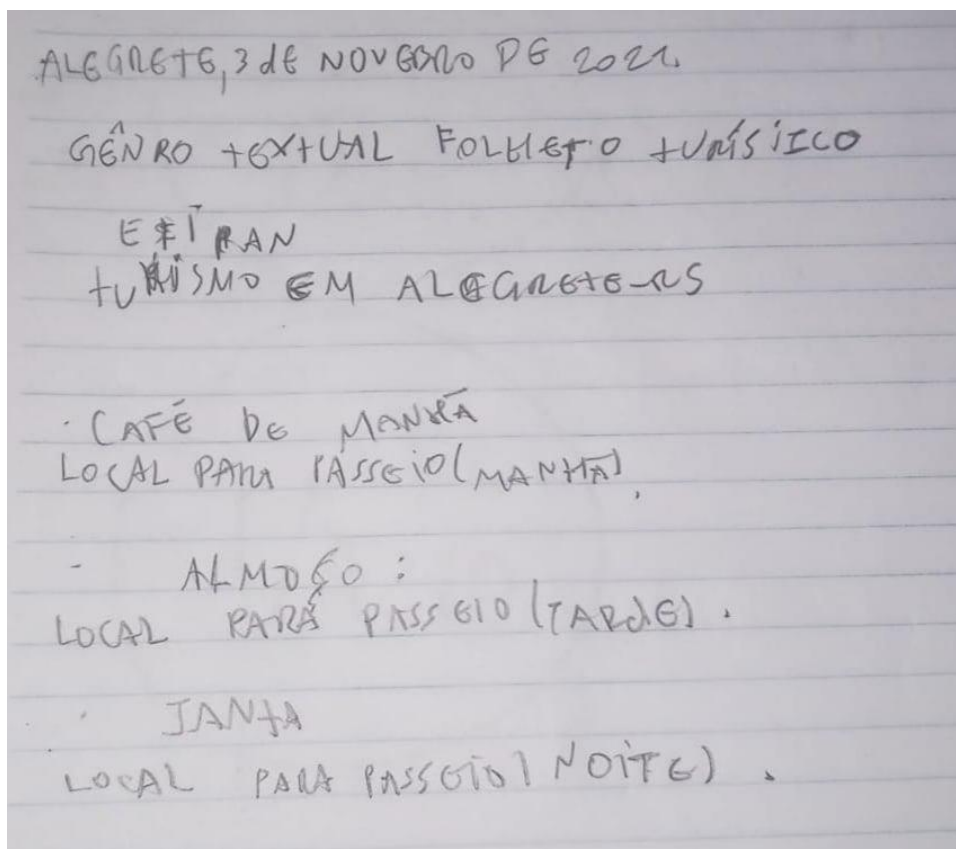 ALEGRETE, 3 dE NOVEBRO DE 2021.
GÊNRO tEXtUAL FOLHETO tURÍSiICO
tURISMO EM ALEGREtE-RS
· CAFÉ DE MANHÃ
LOCAL PARA PASSEiO (MANHÃ).
- ALMOÇO :
LOCAL PARÁ PASSEIO (TARdE).
· JANtA
LOCAL PARA PASSEIO ( NOiTE).